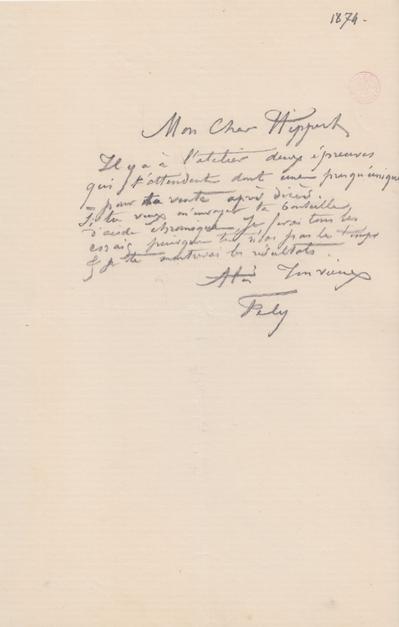 1874.
Mon Cher Hippert
Il y a à l'atelier deux épreuves
qui t'attendent dont une presqu'unique
pour ta vente après
Si tu veux m'envoyer la bouteille
d'acide chromique je ferai tous les
essais puisque tu n'as pas le temps
& je te montrerai les résultats.
Ton vieux
Fély